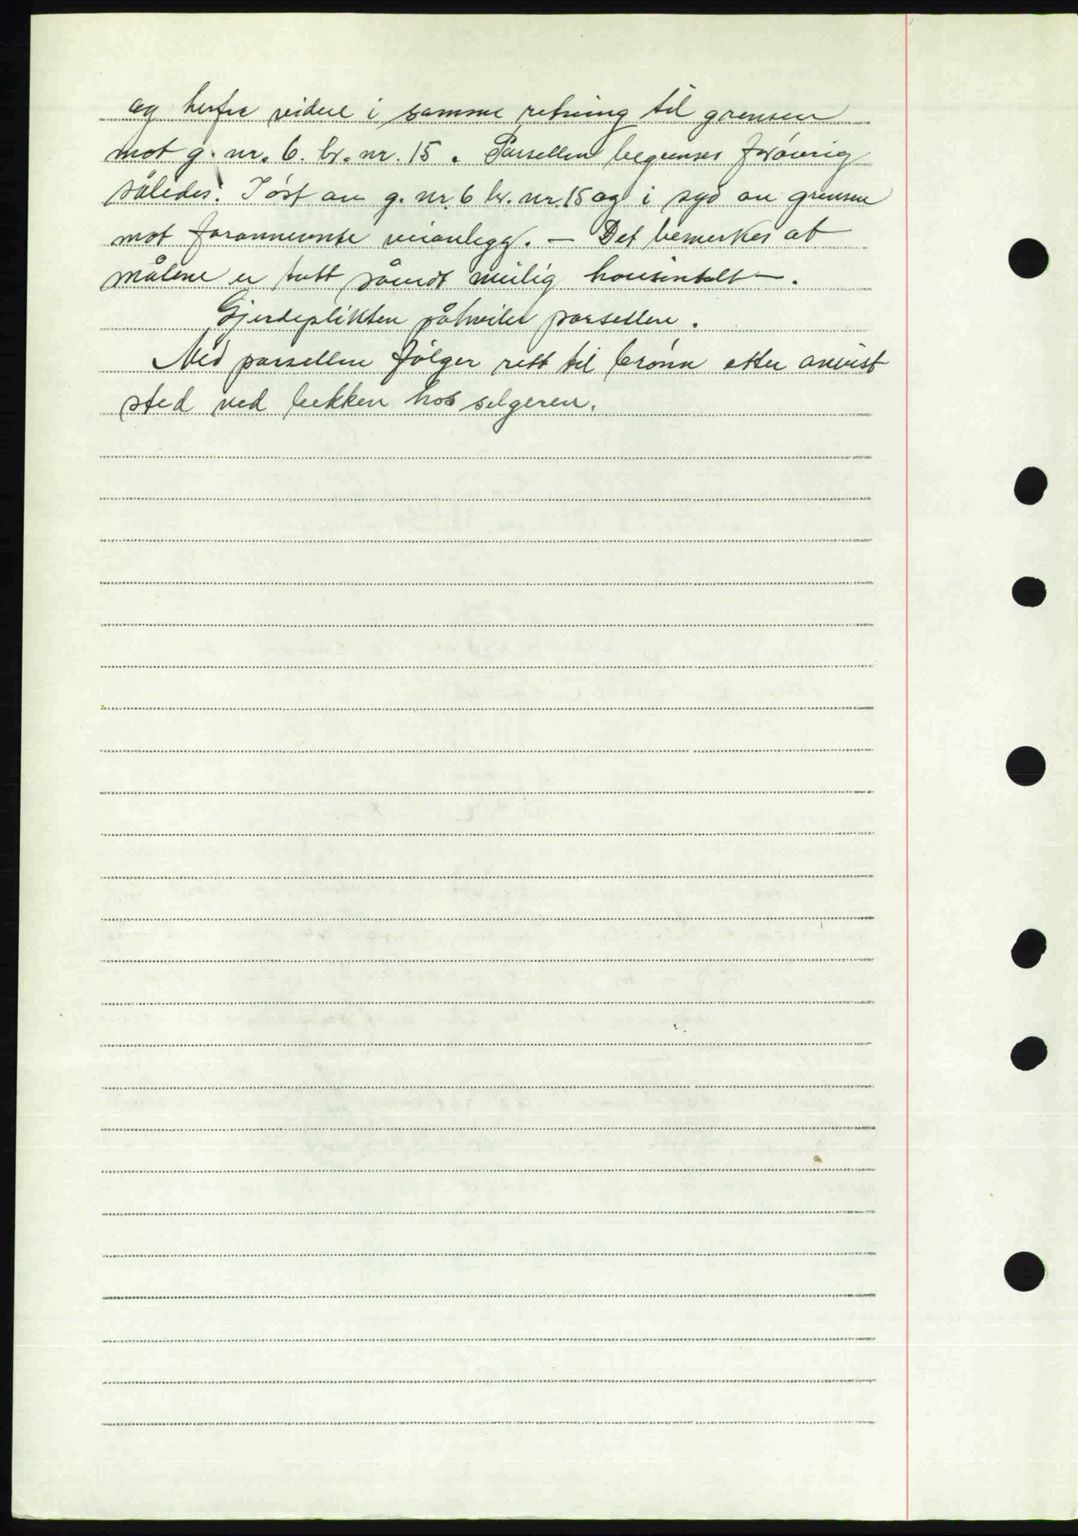 og herfra videre i samme retning til grensen
mot g. nr. 6. br. nr. 15. Parsellen begrenses forøvrig
således: I øst av g. nr. 6 br. nr. 15 og i syd av grensen
mot forannevnte veianlegg. — Det bemerkes at
målene er tatt såvidt mulig horisontalt —.
Gjerdeplikten påhviler parsellen.
Med parsellen følger rett til brønn etter anvist
sted ved bekken hos selgeren.